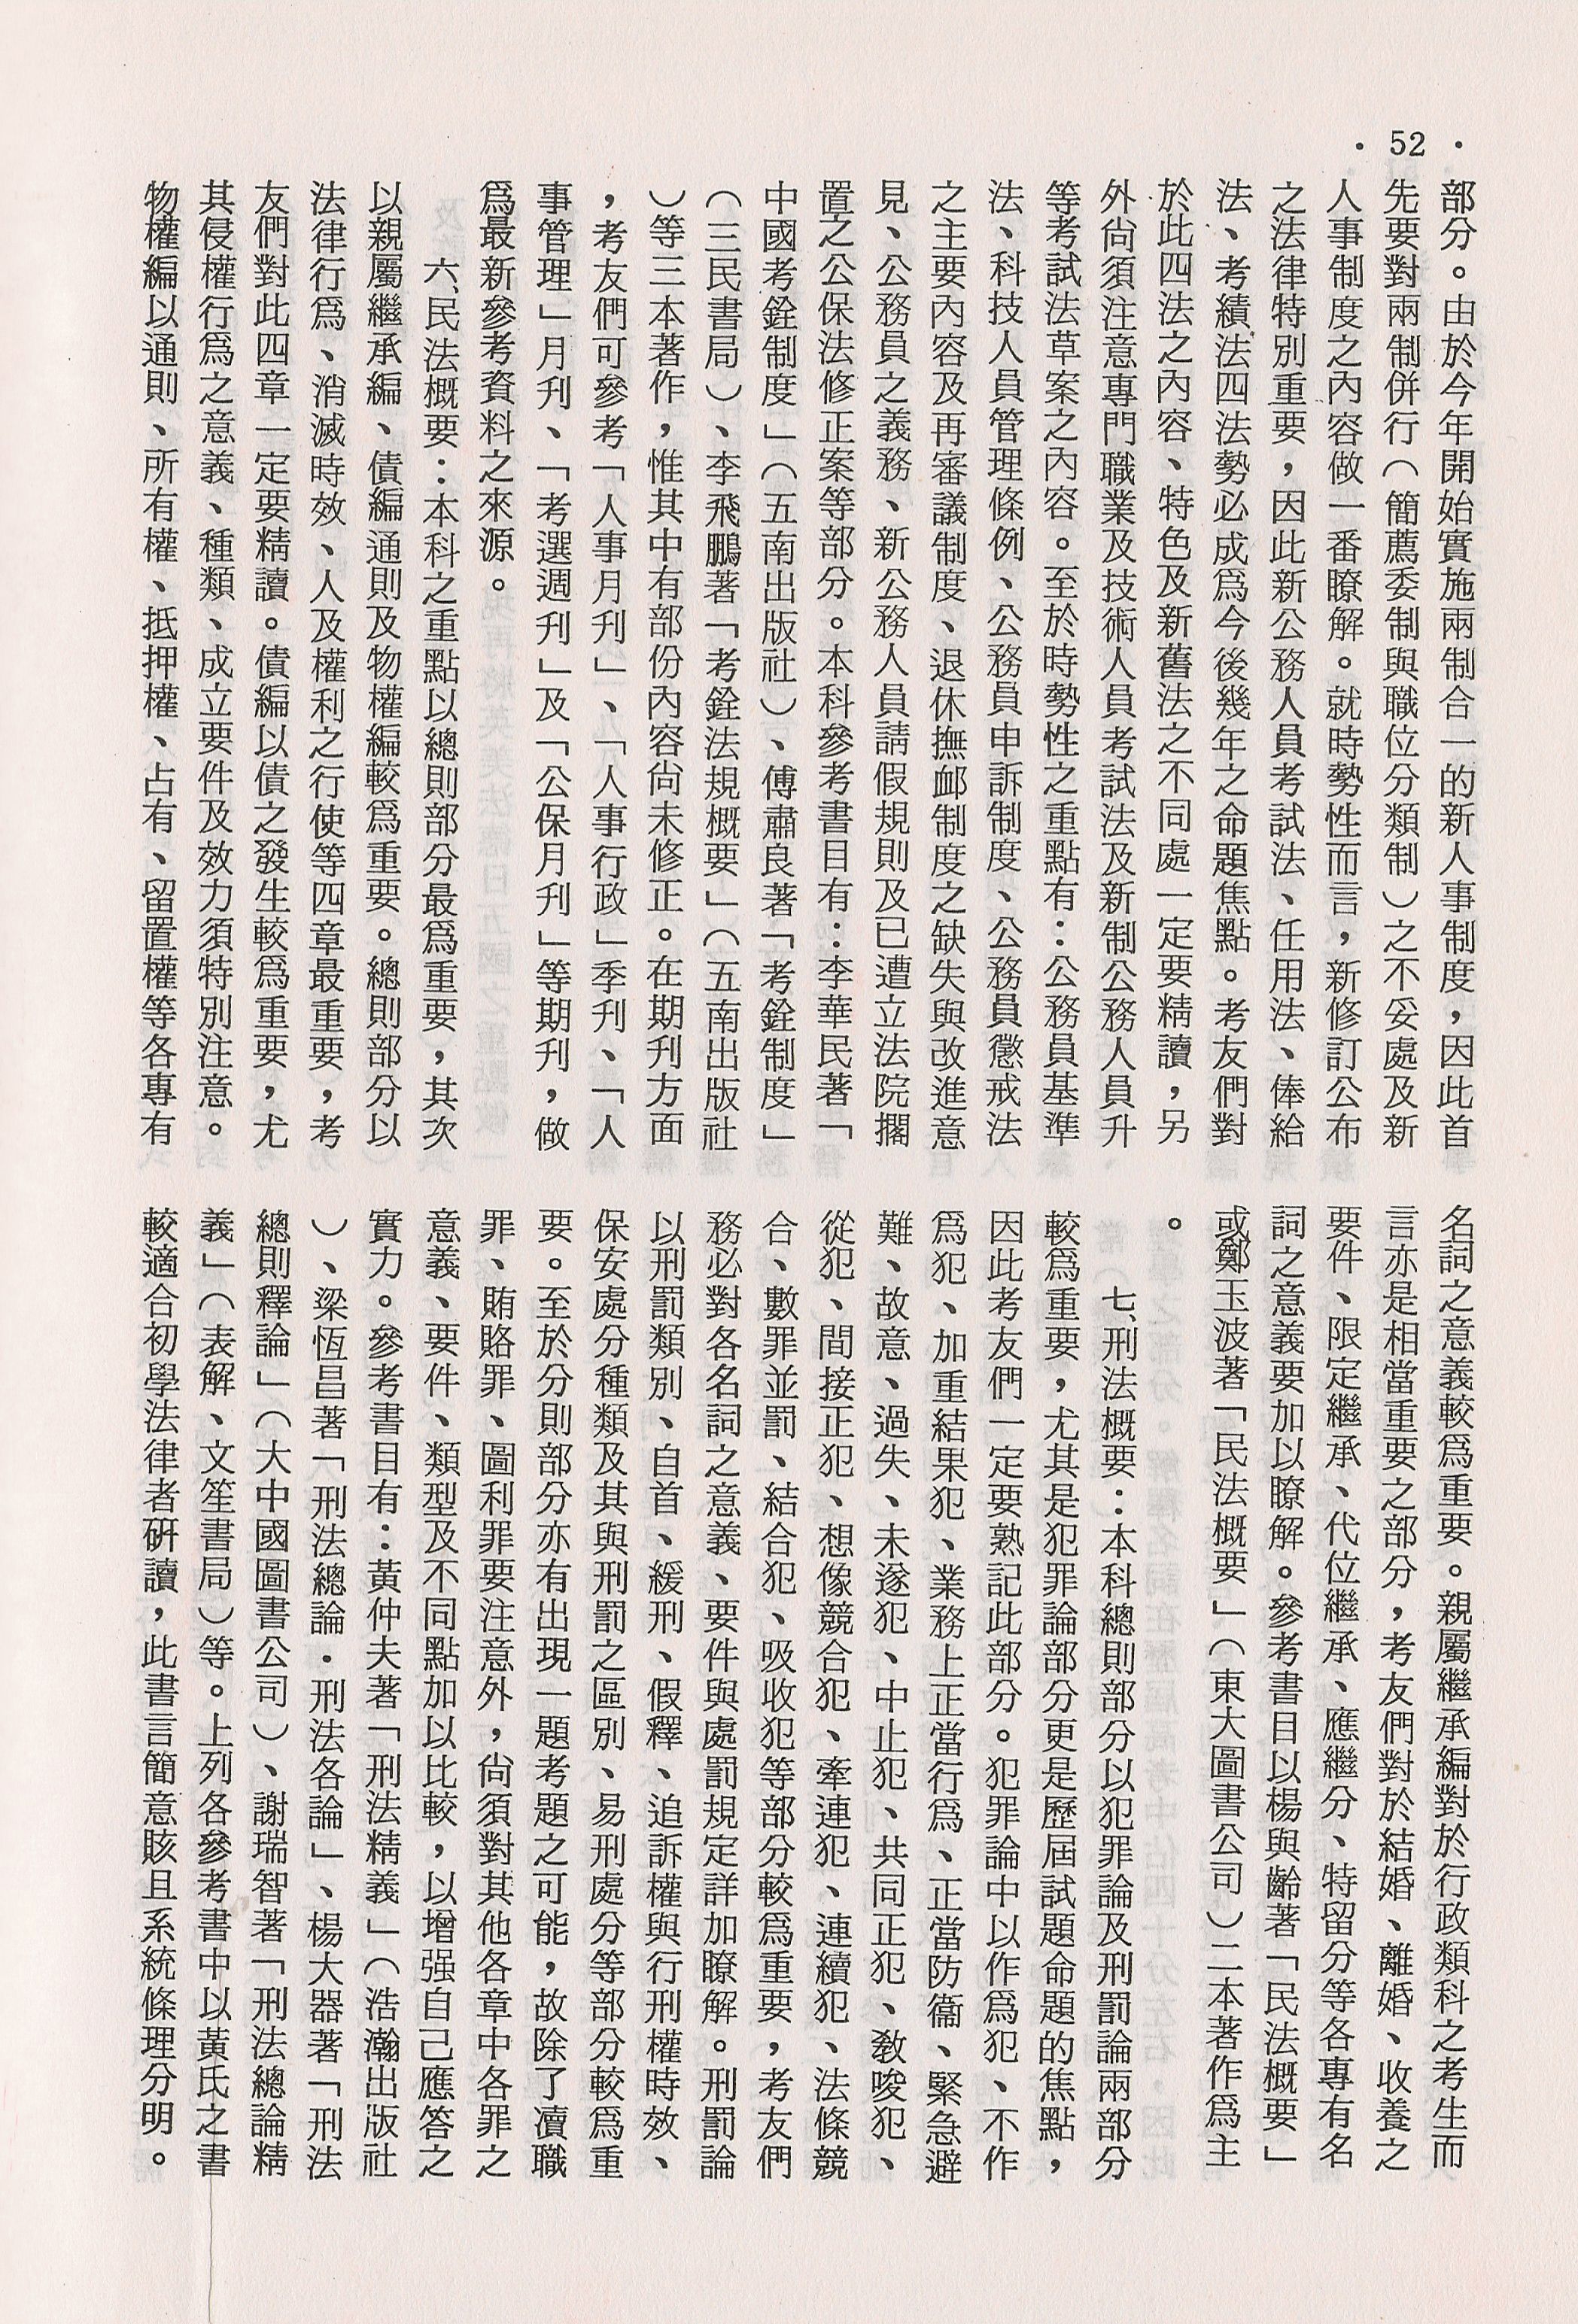 · 52 ·
部分。由於今年開始實施兩制合一的新人事制度，因此首
先要對兩制併行（簡薦委制與職位分類制）之不妥處及新
人事制度之內容做一番瞭解。就時勢性而言，新修訂公布
之法律特別重要，因此新公務人員考試法、任用法、俸給
法、考績法四法勢必成爲今後幾年之命題焦點。考友們對
於此四法之內容、特色及新舊法之不同處一定要精讀，另
外尚須注意專門職業及技術人員考試法及新制公務人員升
等考試法草案之內容。至於時勢性之重點有：公務員基準
法、科技人員管理條例、公務員申訴制度、公務員懲戒法
之主要內容及再審議制度、退休撫卹制度之缺失與改進意
見、公務員之義務、新公務人員請假規則及已遭立法院擱
置之公保法修正案等部分。本科參考書目有：李華民著「
中國考銓制度」（五南出版社）、傅肅良著「考銓制度」
（三民書局）、李飛鵬著「考銓法規概要」（五南出版社
）等三本著作，惟其中有部份內容尚未修正。在期刊方面
，考友們可參考「人事月刊」、「人事行政」季刊、「人
事管理」月刊、「考選週刊」及「公保月刊」等期刊，做
爲最新參考資料之來源。
六、民法概要：本科之重點以總則部分最爲重要，其次
以親屬繼承編、債編通則及物權編較爲重要。總則部分以
法律行爲、消滅時效、人及權利之行使等四章最重要，考
友們對此四章一定要精讀。債編以債之發生較爲重要，尤
其侵權行爲之意義、種類、成立要件及效力須特別注意。
物權編以通則、所有權、抵押權、占有、留置權等各專有
名詞之意義較爲重要。親屬繼承編對於行政類科之考生而
言亦是相當重要之部分，考友們對於結婚、離婚、收養之
要件、限定繼承、代位繼承、應繼分、特留分等各專有名
詞之意義要加以瞭解。參考書目以楊與齡著「民法概要」
或鄭玉波著「民法概要」（東大圖書公司）二本著作爲主
。
七、刑法概要：本科總則部分以犯罪論及刑罰論兩部分
較爲重要，尤其是犯罪論部分更是歷屆試題命題的焦點，
因此考友們一定要熟記此部分。犯罪論中以作爲犯、不作
爲犯、加重結果犯、業務上正當行爲、正當防衞、緊急避
難、故意、過失、未遂犯、中止犯、共同正犯、敎唆犯、
從犯、間接正犯、想像競合犯、牽連犯、連續犯、法條競
合、數罪並罰、結合犯、吸收犯等部分較爲重要，考友們
務必對各名詞之意義、要件與處罰規定詳加瞭解。刑罰論
以刑罰類別、自首、緩刑、假釋、追訴權與行刑權時效、
保安處分種類及其與刑罰之區別、易刑處分等部分較爲重
要。至於分則部分亦有出現一題考題之可能，故除了瀆職
罪、賄賂罪、圖利罪要注意外，尚須對其他各章中各罪之
意義、要件、類型及不同點加以比較，以增强自己應答之
實力。參考書目有：黃仲夫著「刑法精義」（浩瀚出版社
）、梁恆昌著「刑法總論·刑法各論」、楊大器著「刑法
總則釋論」（大中國圖書公司）、謝瑞智著「刑法總論精
義」（表解、文笙書局）等。上列各參考書中以黃氏之書
較適合初學法律者硏讀，此書言簡意賅且系統條理分明。